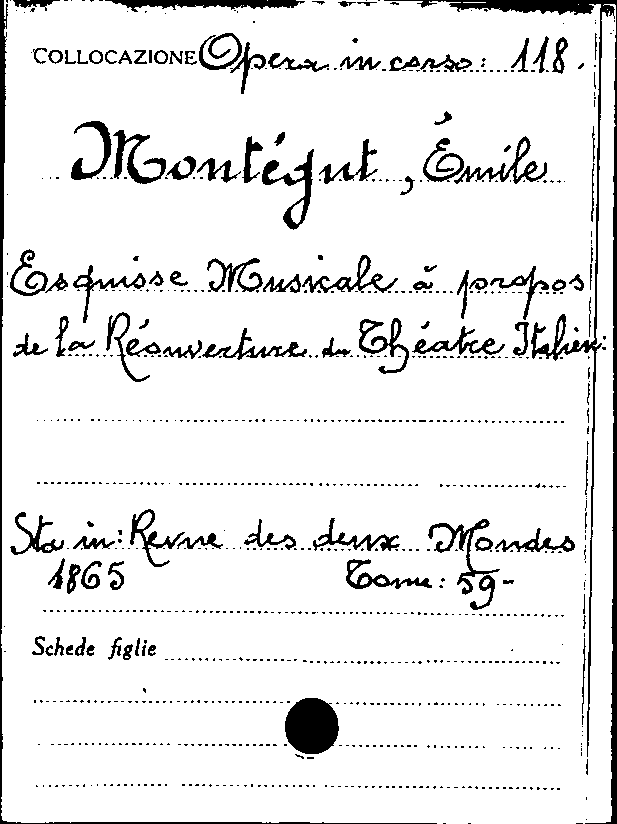 COLLOCAZIONE Opera in corso: 118.
Montégut, Émile
Esquisse Musicale à propos
de la Réouverture du Théatre Italien:
Sta in: Revue des deux Mondes
1865 Tome: 59-
Schede figlie